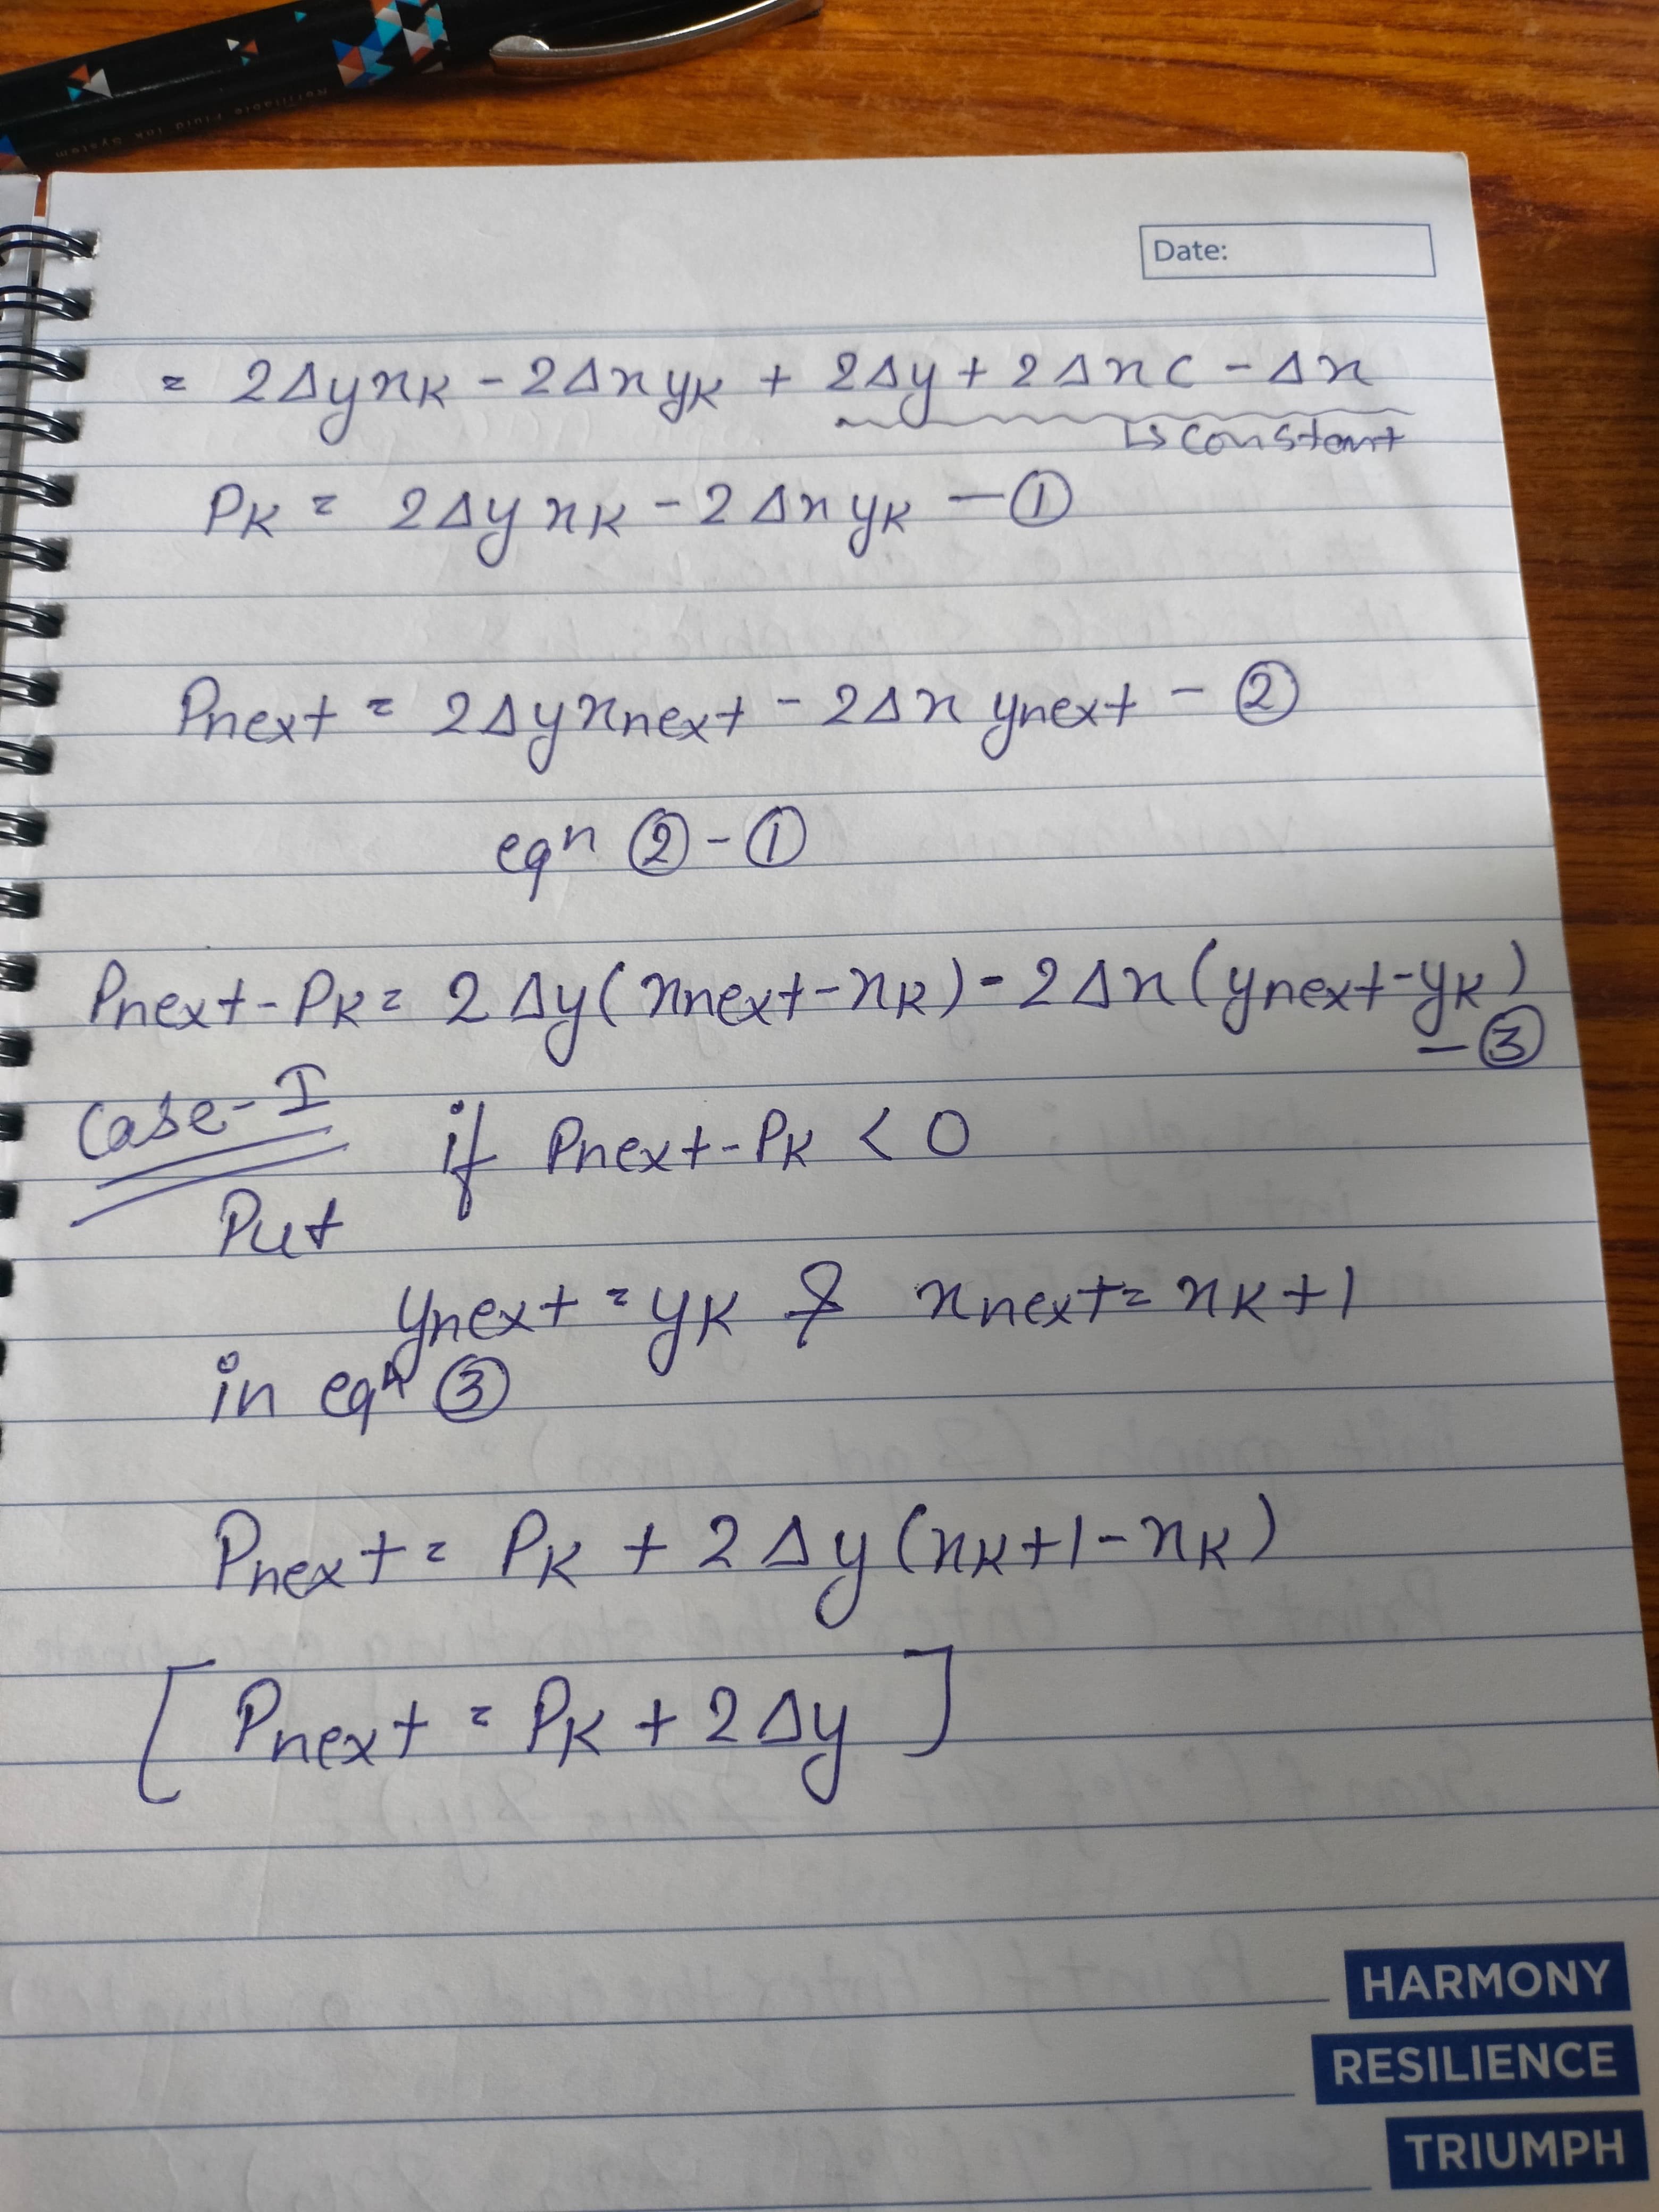 Refillable Fluid Ink System
Date:
= 2Δyxk - 2Δxyk + 2Δy + 2Δxc - Δx
↳ constant
Pk = 2Δyxk - 2Δxyk — ①
Pnext = 2Δyxnext - 2Δx ynext - ②
eqn ② - ①
Pnext - Pk = 2Δy(xnext - xk) - 2Δx(ynext - yk)
— ③
Case - I if Pnext - Pk < 0
Put
ynext = yk & xnext = xk + 1
in eqn ③
Pnext = Pk + 2Δy(xk + 1 - xk)
[Pnext = Pk + 2Δy]
HARMONY
RESILIENCE
TRIUMPH